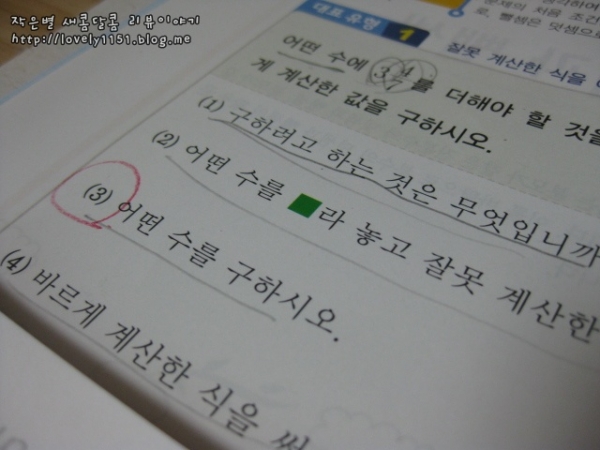 작은별 새콤달콤 리뷰이야기
http://lovely1151.blog.me
대표 유형 1
잘못 계산한 식을
어떤 수에 를 더해야 할 것을
게 계산한 값을 구하시오.
(1) 구하려고 하는 것은 무엇입니까
(2) 어떤 수를 ■라 놓고 잘못 계산한
(3) 어떤 수를 구하시오.
(4) 바르게 계산한 식을